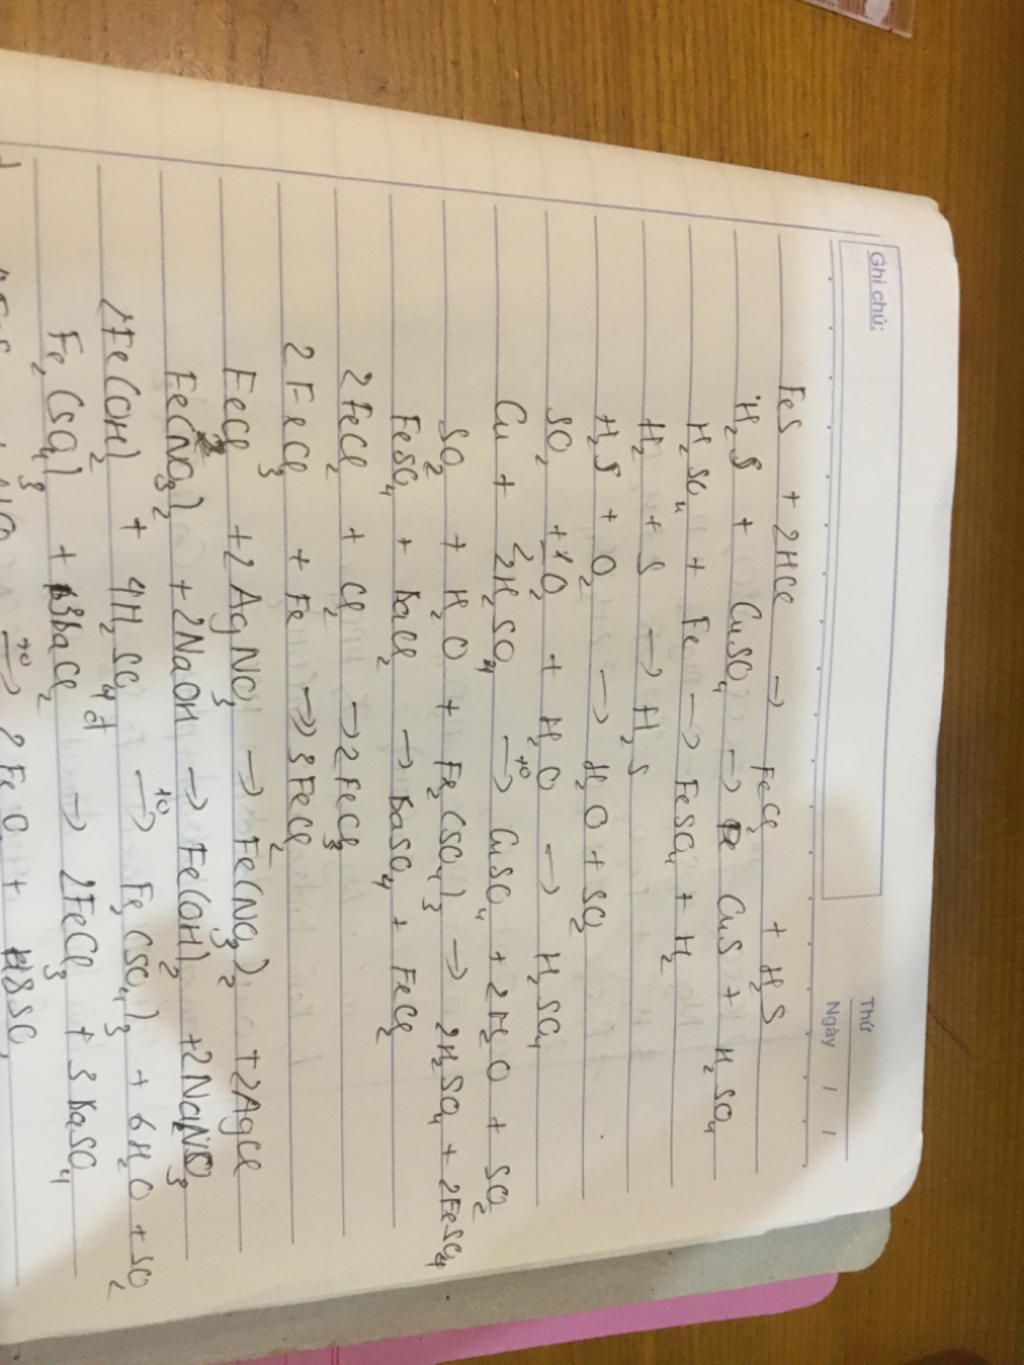 Ghi chú:
Thứ
Ngày / /
FeS + 2HCl → FeCl2 + H2S
H2S + CuSO4 → CuS + H2SO4
H2SO4 + Fe → FeSO4 + H2
H2 + S → H2S
H2S + O2 → H2O + SO2
SO2 + O2 + H2O → H2SO4
Cu + 2H2SO4 →t0 CuSO4 + 2H2O + SO2
SO2 + H2O + Fe2(SO4)3 → 2H2SO4 + 2FeSO4
FeSO4 + BaCl2 → BaSO4 + FeCl2
2FeCl2 + Cl2 → 2FeCl3
2FeCl3 + Fe → 3FeCl2
FeCl2 + 2AgNO3 → Fe(NO3)2 + 2AgCl
Fe(NO3)2 + 2NaOH → Fe(OH)2 + 2NaNO3
2Fe(OH)2 + 4H2SO4 đ →t0 Fe2(SO4)3 + 6H2O + SO2
Fe2(SO4)3 + 3BaCl2 → 2FeCl3 + 3BaSO4